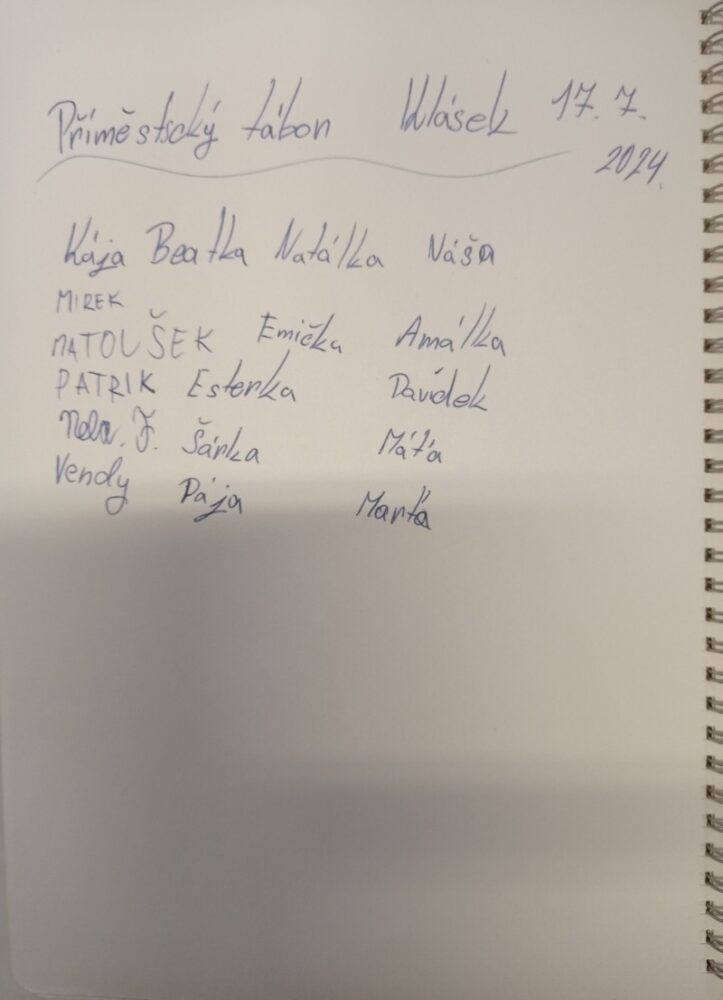 Příměstský tábor Klásek 17. 7.
2024
Kája Beatka Natálka Náša
MIREK
MATOUŠEK Emička Amálka
PATRIK Esterka Davídek
Nela. J. Šárka Máťa
Vendy Pája Marťa